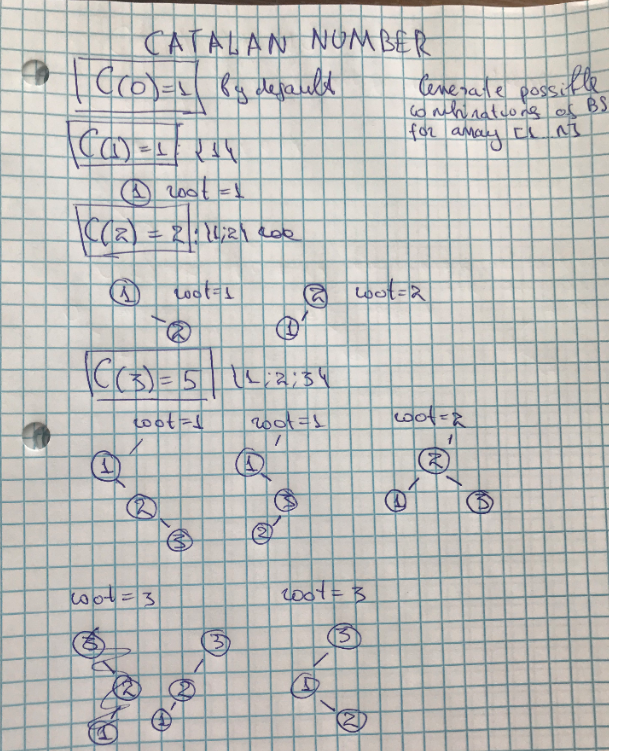 CATALAN NUMBER
C(0)=1 by default
Generate possible
combinations of BS
for array [1..n]
C(1)=1 {1}
1 root=1
C(2)=2: {1;2} roo
1 root=1 2 root=2
2 1
C(3)=5 {1;2;3}
root=1 root=1 root=2
1 1 2
2 3 1 3
3 2
root=3 root=3
3 3 3
2 2 1
1 1 2